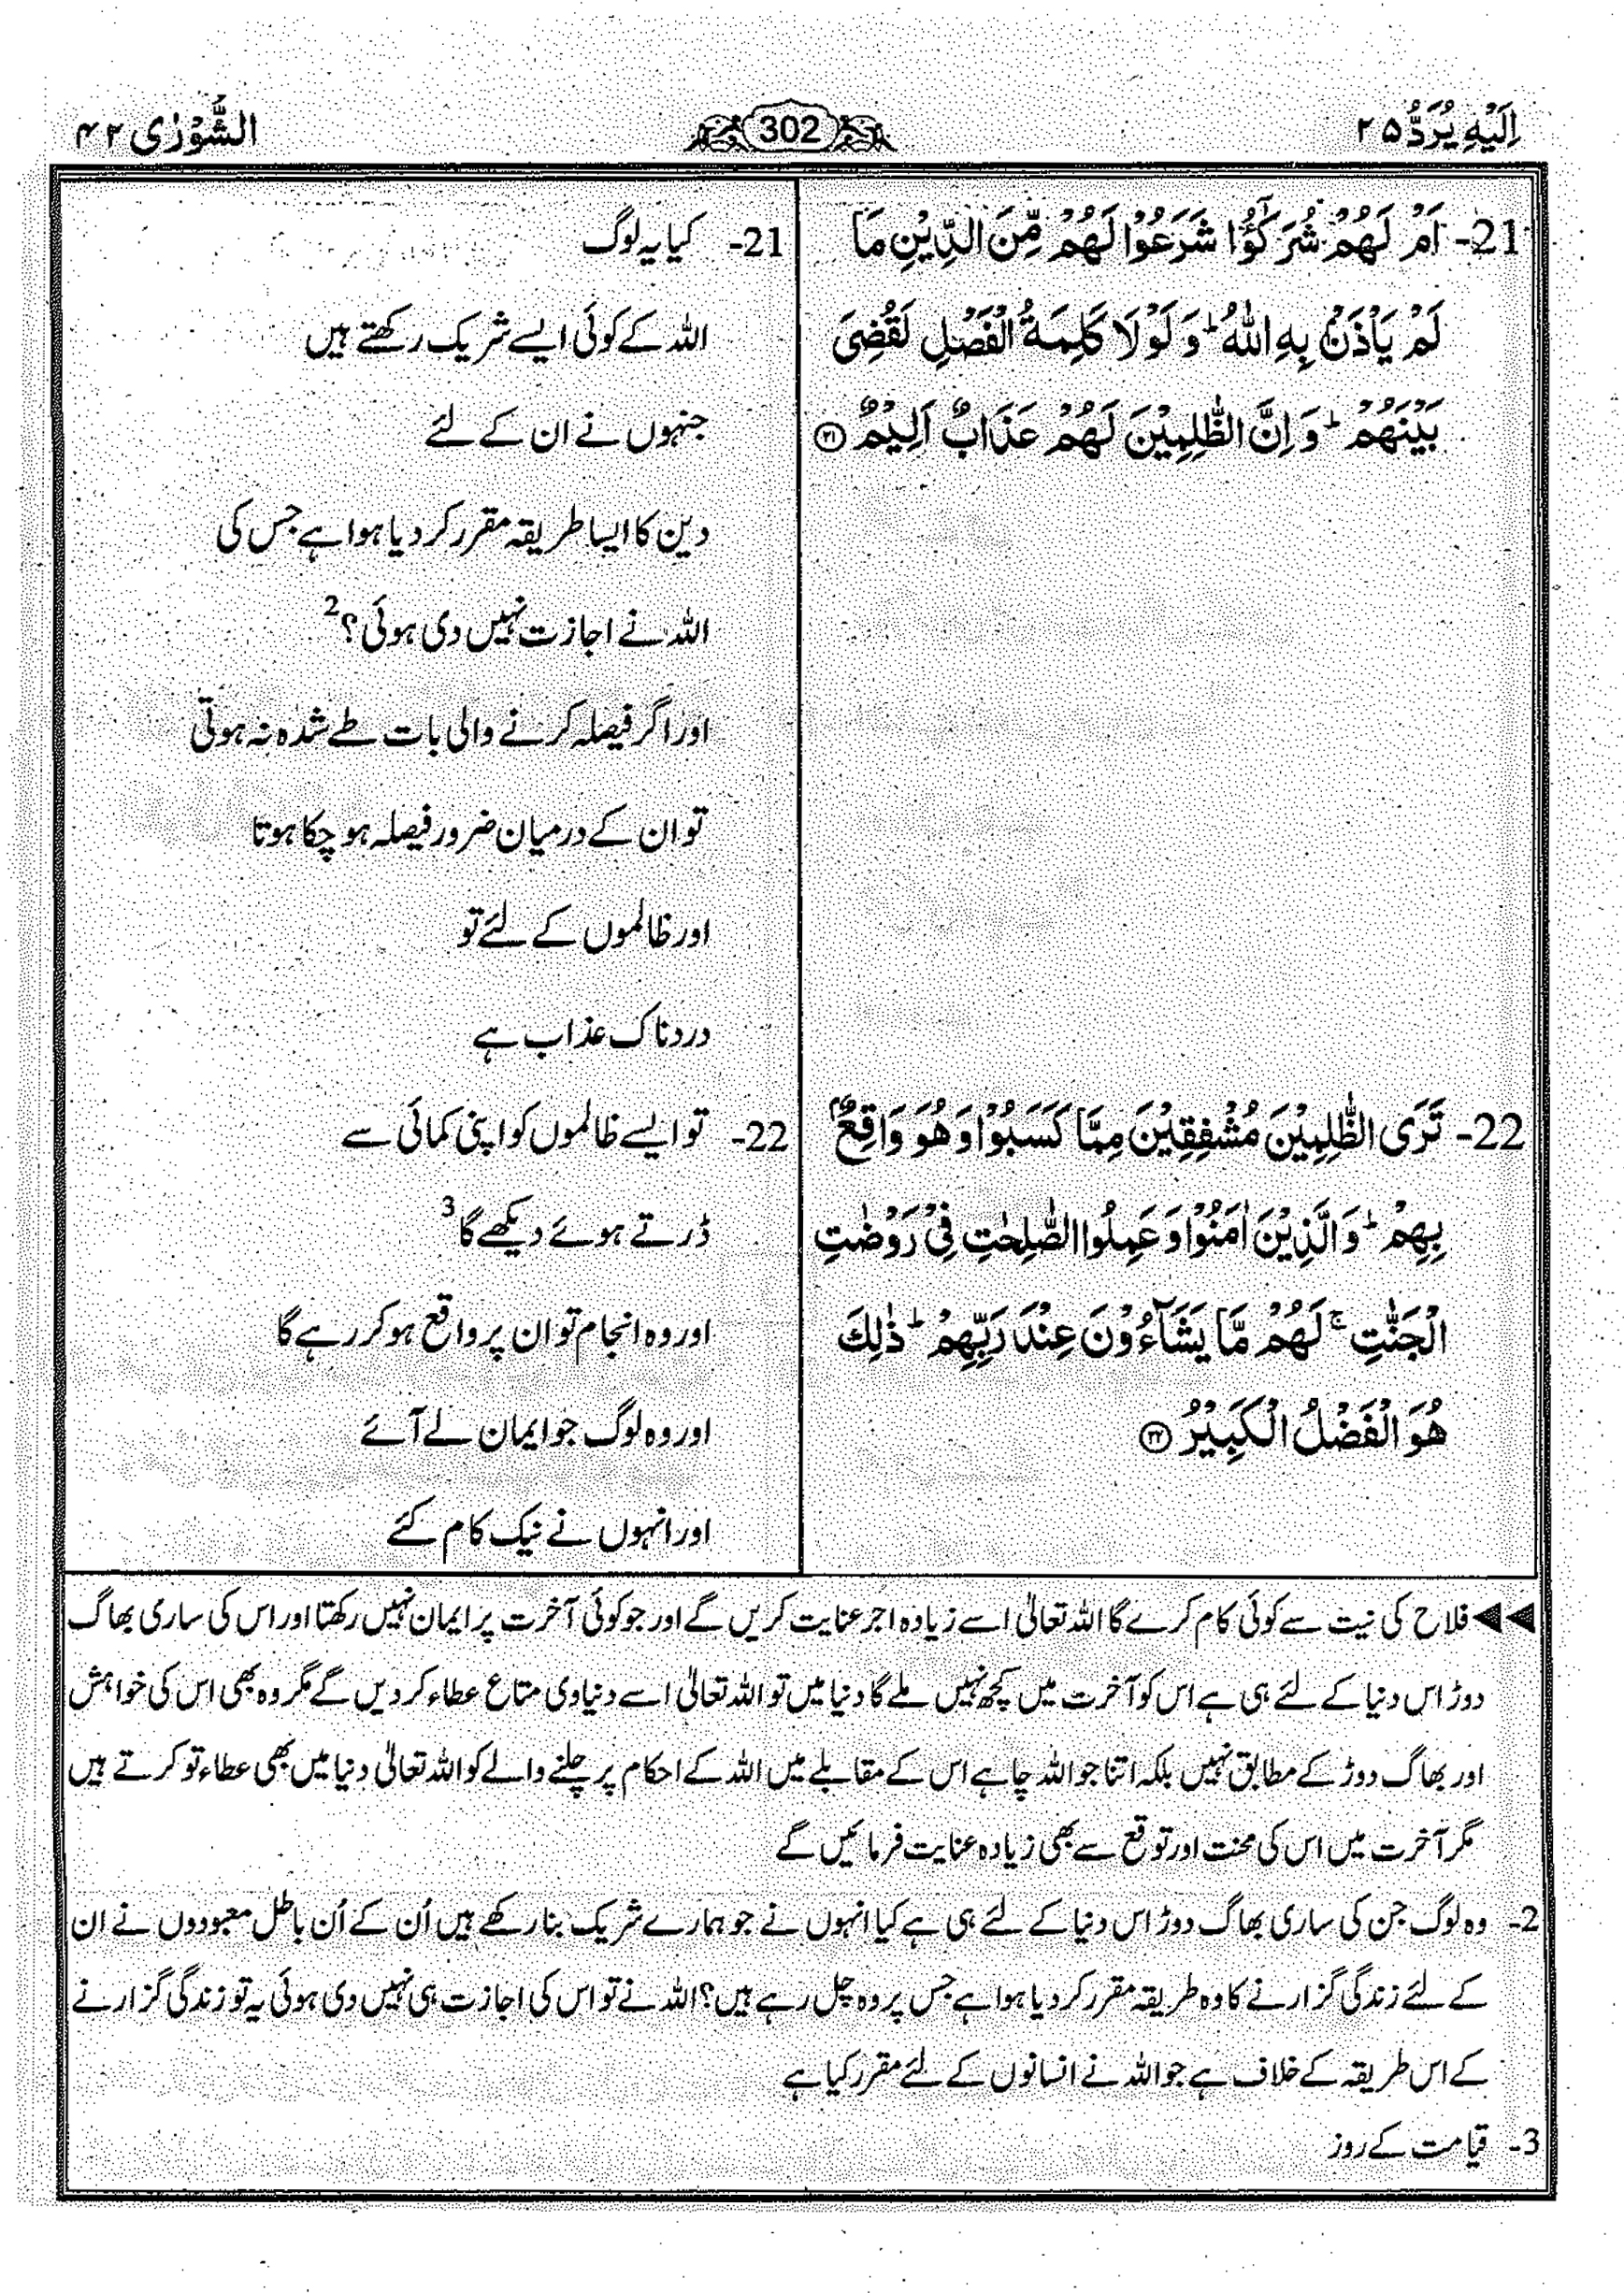 اِلَيْهِ يُرَدُّ ۲۵
302
الشُّوْرٰى ۴۲
21- اَمْ لَهُمْ شُرَكٰٓؤُا شَرَعُوْا لَهُمْ مِّنَ الدِّيْنِ مَا
لَمْ يَاْذَنْۢ بِهِ اللّٰهُ ؕ وَ لَوْ لَا كَلِمَةُ الْفَصْلِ لَقُضِىَ
بَيْنَهُمْ ؕ وَ اِنَّ الظّٰلِمِيْنَ لَهُمْ عَذَابٌ اَلِيْمٌ ﴿۲۱﴾
22- تَرَى الظّٰلِمِيْنَ مُشْفِقِيْنَ مِمَّا كَسَبُوْا وَ هُوَ وَاقِعٌۢ
بِهِمْ ؕ وَ الَّذِيْنَ اٰمَنُوْا وَ عَمِلُوا الصّٰلِحٰتِ فِىْ رَوْضٰتِ
الْجَنّٰتِ ۚ لَهُمْ مَّا يَشَآءُوْنَ عِنْدَ رَبِّهِمْ ؕ ذٰلِكَ
هُوَ الْفَضْلُ الْكَبِيْرُ ﴿۲۲﴾
21- کیا یہ لوگ
اللہ کے کوئی ایسے شریک رکھتے ہیں
جنہوں نے ان کے لئے
دین کا ایسا طریقہ مقرر کر دیا ہوا ہے جس کی
اللہ نے اجازت نہیں دی ہوئی؟ 2
اور اگر فیصلہ کرنے والی بات طے شدہ نہ ہوتی
تو ان کے درمیان ضرور فیصلہ ہو چکا ہوتا
اور ظالموں کے لئے تو
دردناک عذاب ہے
22- تو ایسے ظالموں کو اپنی کمائی سے
ڈرتے ہوئے دیکھے گا 3
اور وہ انجام تو ان پر واقع ہو کر رہے گا
اور وہ لوگ جو ایمان لے آئے
اور انہوں نے نیک کام کئے
◀◀ فلاح کی نیت سے کوئی کام کرے گا اللہ تعالیٰ اسے زیادہ اجر عنایت کریں گے اور جو کوئی آخرت پر ایمان نہیں رکھتا اور اس کی ساری بھاگ
دوڑ اس دنیا کے لئے ہی ہے اس کو آخرت میں کچھ نہیں ملے گا دنیا میں تو اللہ تعالیٰ اسے دنیاوی متاع عطاء کر دیں گے مگر وہ بھی اس کی خواہش
اور بھاگ دوڑ کے مطابق نہیں بلکہ اتنا جو اللہ چاہے اس کے مقابلے میں اللہ کے احکام پر چلنے والے کو اللہ تعالیٰ دنیا میں بھی عطاء تو کرتے ہیں
مگر آخرت میں اس کی محنت اور توقع سے بھی زیادہ عنایت فرمائیں گے
2- وہ لوگ جن کی ساری بھاگ دوڑ اس دنیا کے لئے ہی ہے کیا انہوں نے جو ہمارے شریک بنا رکھے ہیں اُن کے اُن باطل معبودوں نے ان
کے لئے زندگی گزارنے کا وہ طریقہ مقرر کر دیا ہوا ہے جس پر وہ چل رہے ہیں؟ اللہ نے تو اس کی اجازت ہی نہیں دی ہوئی یہ تو زندگی گزارنے
کے اس طریقہ کے خلاف ہے جو اللہ نے انسانوں کے لئے مقرر کیا ہے
3- قیامت کے روز